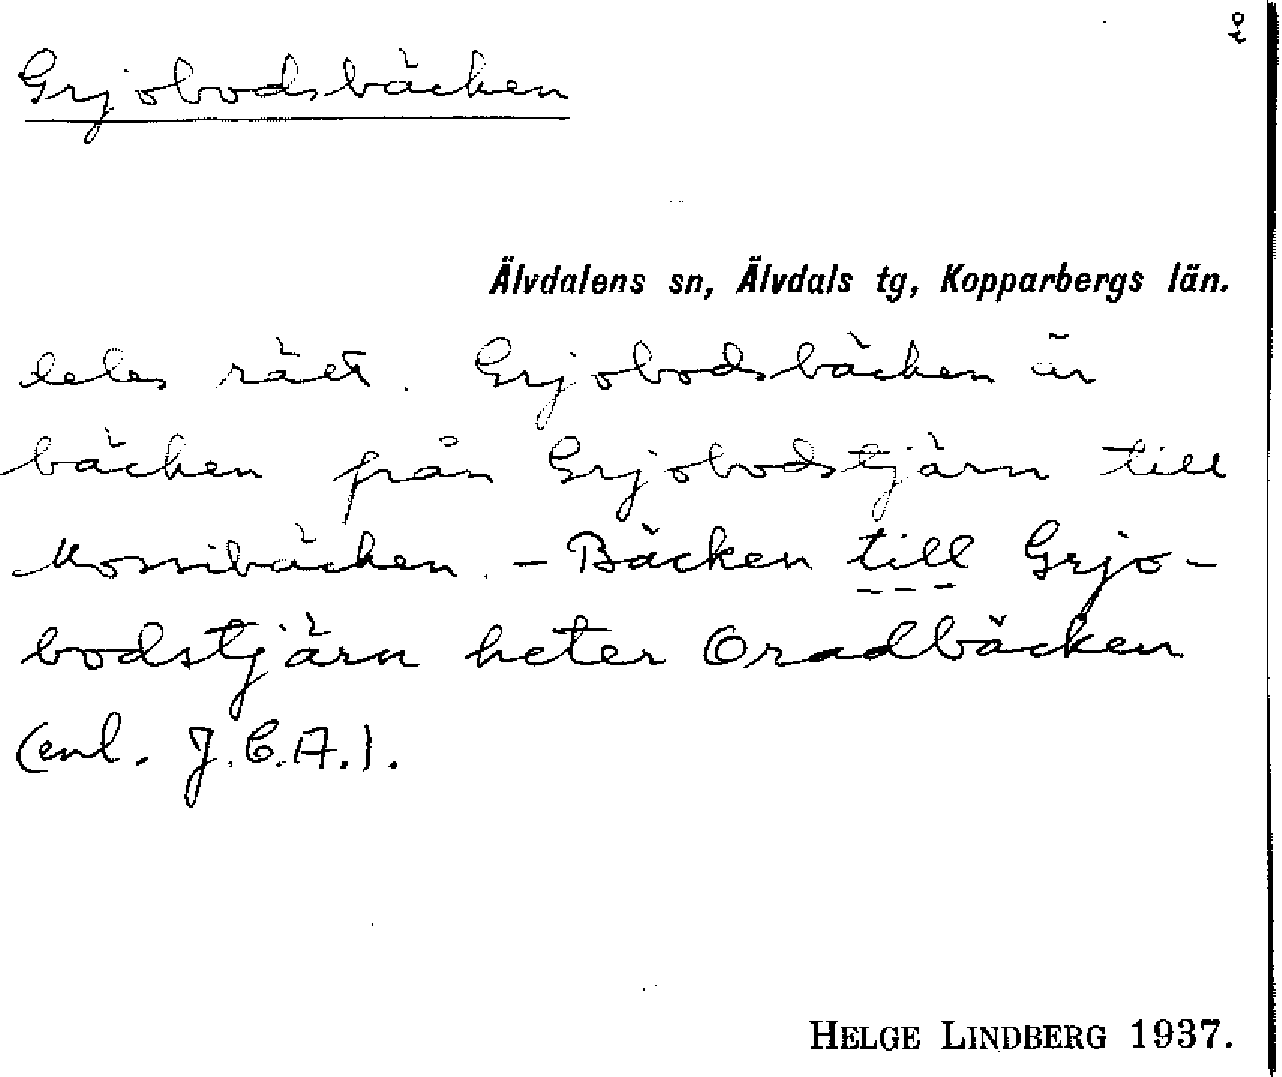 2
Grjobodsbäcken
Älvdalens sn, Älvdals tg, Kopparbergs län.
deles rätt. Grjobodsbäcken är
bäcken från Grjobodstjärn till
Mossibäcken. - Bäcken till Grjo-
bodstjärn heter Oradbäcken
(enl. J.C.A.).
HELGE LINDBERG 1937.